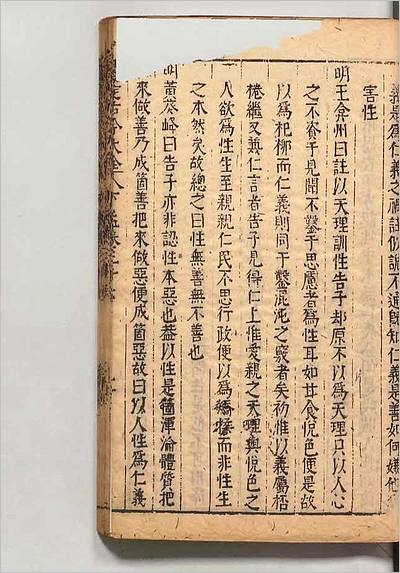 義是爲仁義之禍註似說不通曉知仁義是善如何嫌他
害性
明王弇州曰註以天理訓性告子却原不以爲天理只以人心
之不啻于見聞不鑿于思慮者爲性耳如甘食悅色便是故
以爲杞柳而仁義則同于鑿混沌之竅者矣初惟以義屬桮
棬繼又兼仁言者告子見得仁上惟愛親之天理與悅色之
人欲爲性生至親親仁民不思行政便以爲矯揉而非性生
之本然矣故總之曰性無善無不善也
明黄葵峰曰告子亦非認性本惡也蓋以性是箇渾淪體質把
來做善乃成箇善把來做惡便成箇惡故曰以人性爲仁義